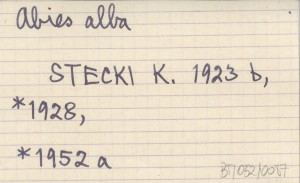 Abies alba
STECKI K. 1923 b,
*1928,
*1952 a
BT/052/0057